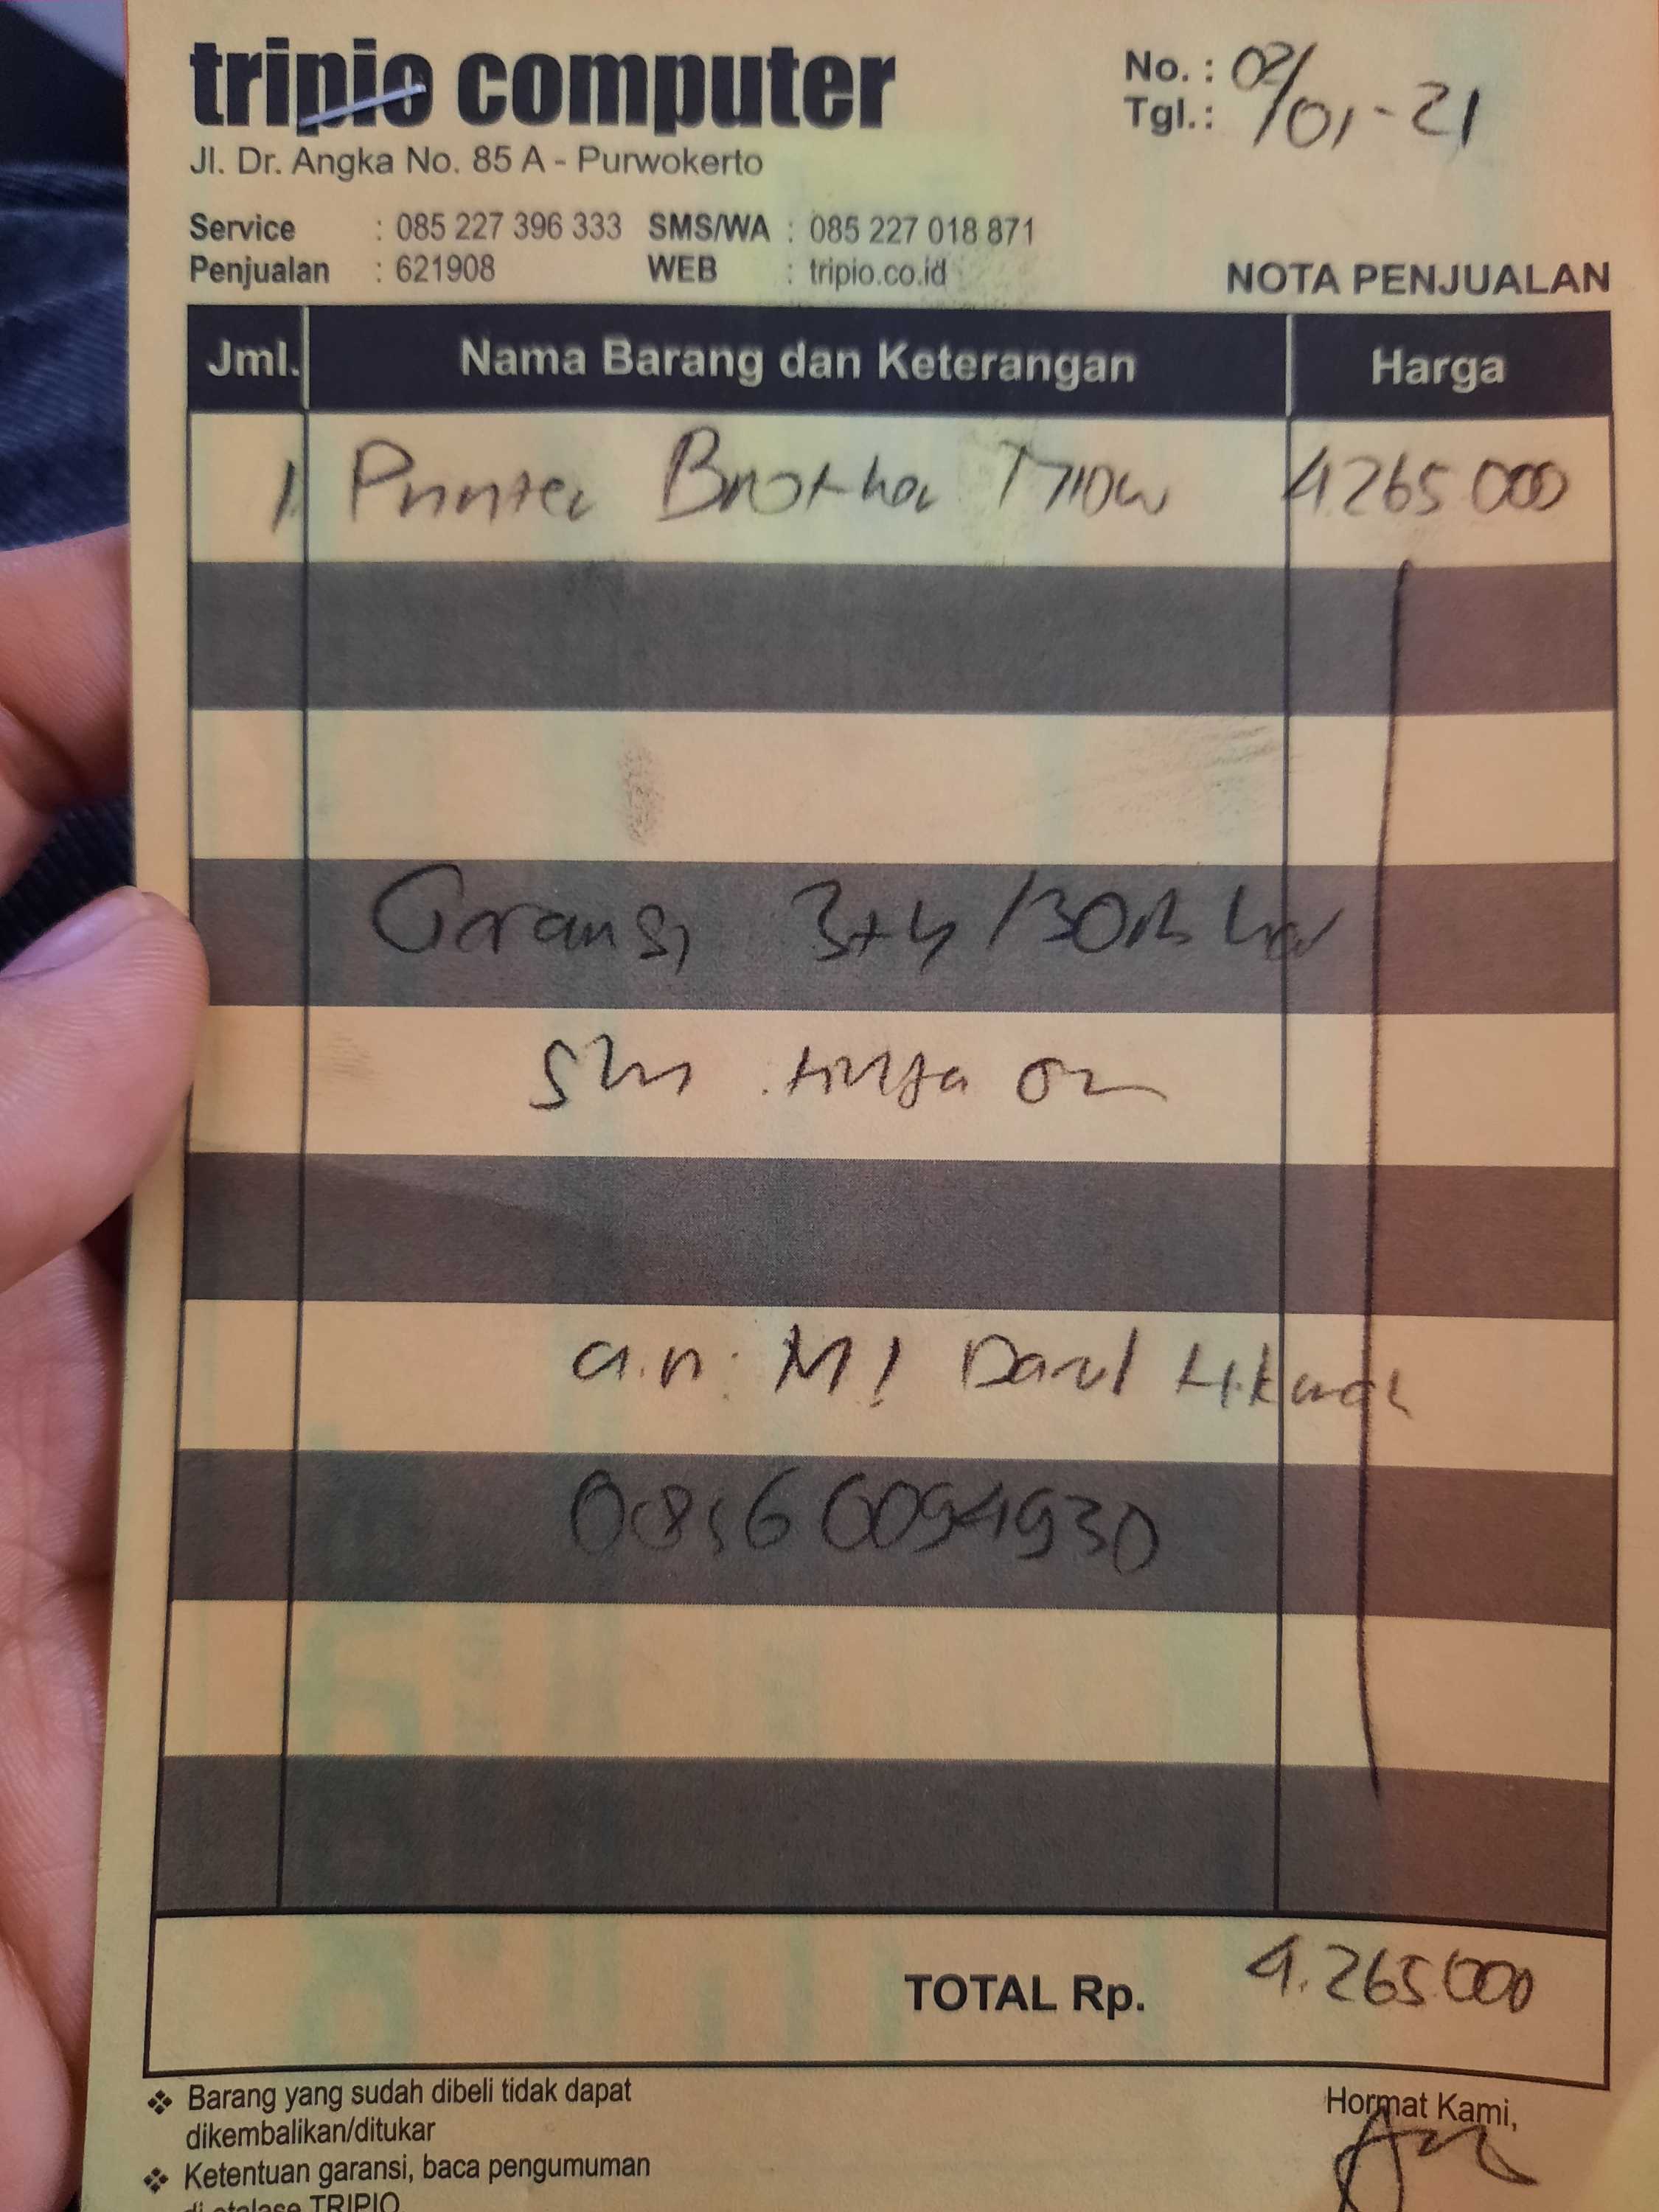 tripio computer
No. : 02/01-21
Tgl. :
Jl. Dr. Angka No. 85 A - Purwokerto
Service : 085 227 396 333 SMS/WA : 085 227 018 871
Penjualan : 621908 WEB : tripio.co.id
NOTA PENJUALAN
Jml. Nama Barang dan Keterangan Harga
1 Printer Brother T710w 4.265.000
Garansi 3th /30rb
tinta
a.n. MI Darul Hikmah
TOTAL Rp. 4.265.000
❖ Barang yang sudah dibeli tidak dapat
dikembalikan/ditukar
Hormat Kami,
❖ Ketentuan garansi, baca pengumuman
di etalase TRIPIO